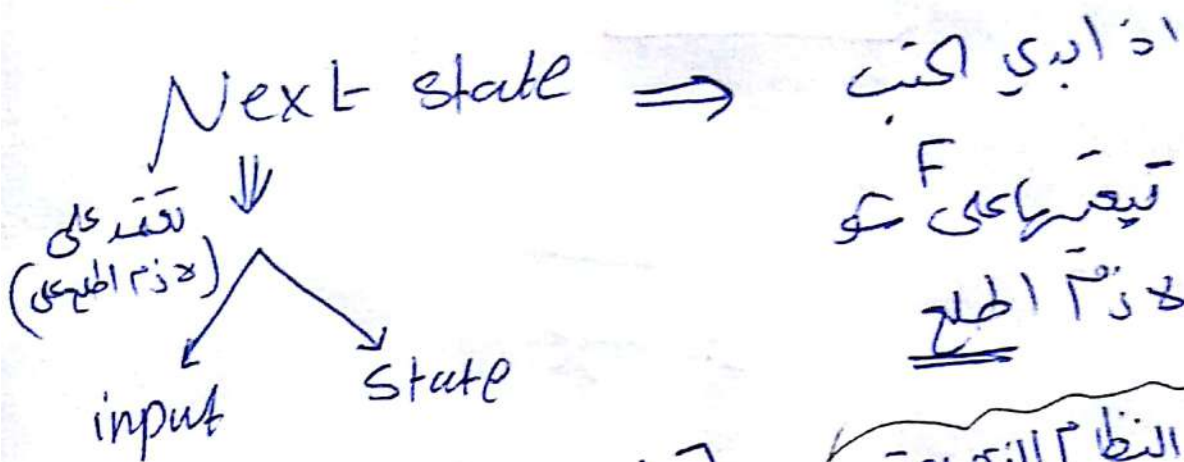 Next state ⇒ اذا بدي اكتب
قيمتها على F شو
لازم اطلع
تعتمد على
(لازم اطلع على)
input State
النظام الذي